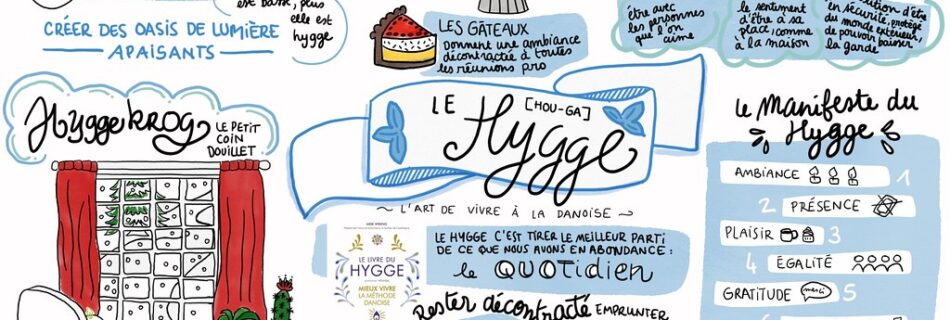 est basse, plus
elle est
hygge
CRÉER DES OASIS DE LUMIÈRE
APAISANTS
Hyggekrog
LE PETIT
COIN
DOUILLET
LES GÂTEAUX
Donnent une ambiance
décontractée à toutes
les réunions pro
être avec
les personnes
que l'on
aime
le sentiment
d'être à sa
place, comme
à la maison
d'être
en sécurité, protégé
du monde extérieur,
de pouvoir baisser
la garde
LE [HOU-GA]
Hygge
~ L'ART DE VIVRE À LA DANOISE ~
LE LIVRE DU
HYGGE
MIEUX VIVRE
LA MÉTHODE
DANOISE
LE HYGGE C'EST TIRER LE MEILLEUR PARTI
DE CE QUE NOUS AVONS EN ABONDANCE :
le QUOTidien
Rester décontracté EMPRUNTER
le manifeste du
Hygge
AMBIANCE 1
2 PRÉSENCE
PLAISIR 3
4 ÉGALITÉ
GRATITUDE merci 5